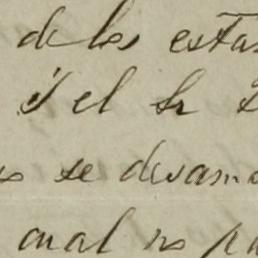 de los estas
Y el Sr
se desam
cual no pa